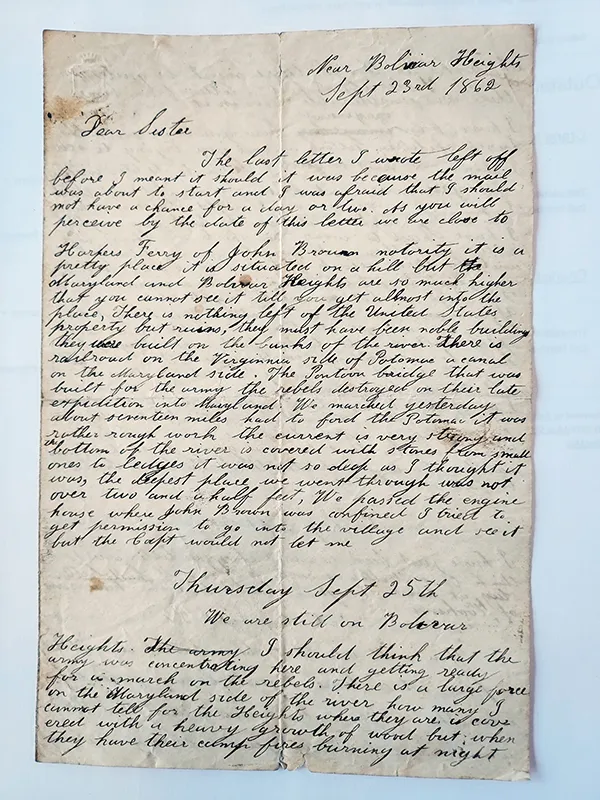 Near Bolivar Heights
Sept 23rd 1862
Dear Sister
The last letter I wrote left off
before I meant it should it was because the mail
was about to start and I was afraid that I should
not have a chance for a day or two. As you will
perceive by the date of this letter we are close to
Harpers Ferry of John Brown notority it is a
pretty place it is situated on a hill but the
Maryland and Bolivar Heights are so much higher
that you cannot see it till you get allmost into the
place, There is nothing left of the United States
property but ruins, they must have been noble building
they were built on the banks of the river there is
railroad on the Virginnia side of Potomac a canal
on the Maryland side. The Pontoon bridge that was
built for the army the rebels destroyed on their late
expedition into Maryland. We marched yesterday
about seventeen miles had to ford the Potomac it was
rather rough work the current is very strong and
bottom of the river is covered with stones from small
ones to ledges it was not so deep as I thought it
was, the deepest place we went through was not
over two and a half feet, We passed the engine
house where John Brown was confined I tried to
get permission to go into the village and see it
but the Capt would not let me
Thursday Sept 25th
We are still on Bolivar
Heights. The army I should think that the
army was concentrating here and getting ready
for a march on the rebels. There is a large force
on the Maryland side of the river how many I
cannot tell for the Heights where they are is cove
ered with a heavy growth of wood but when
they have their camp fires burning at night